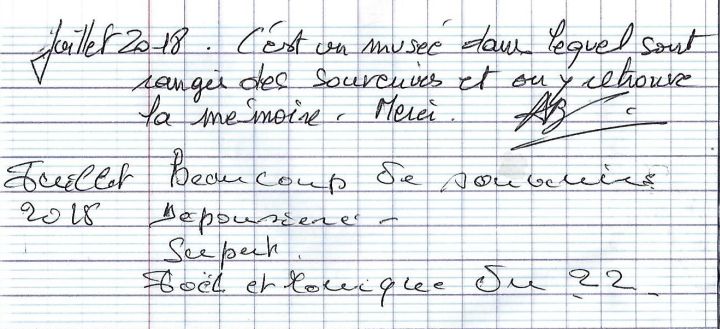 Juillet 2018. C'est un musée dans lequel sont
rangés des souvenirs et on y retrouve
la mémoire. Merci. AB
Juillet Beaucoup de souvenirs
2018 Depoussiere -
Superbe.
Joël et Monique Du 22